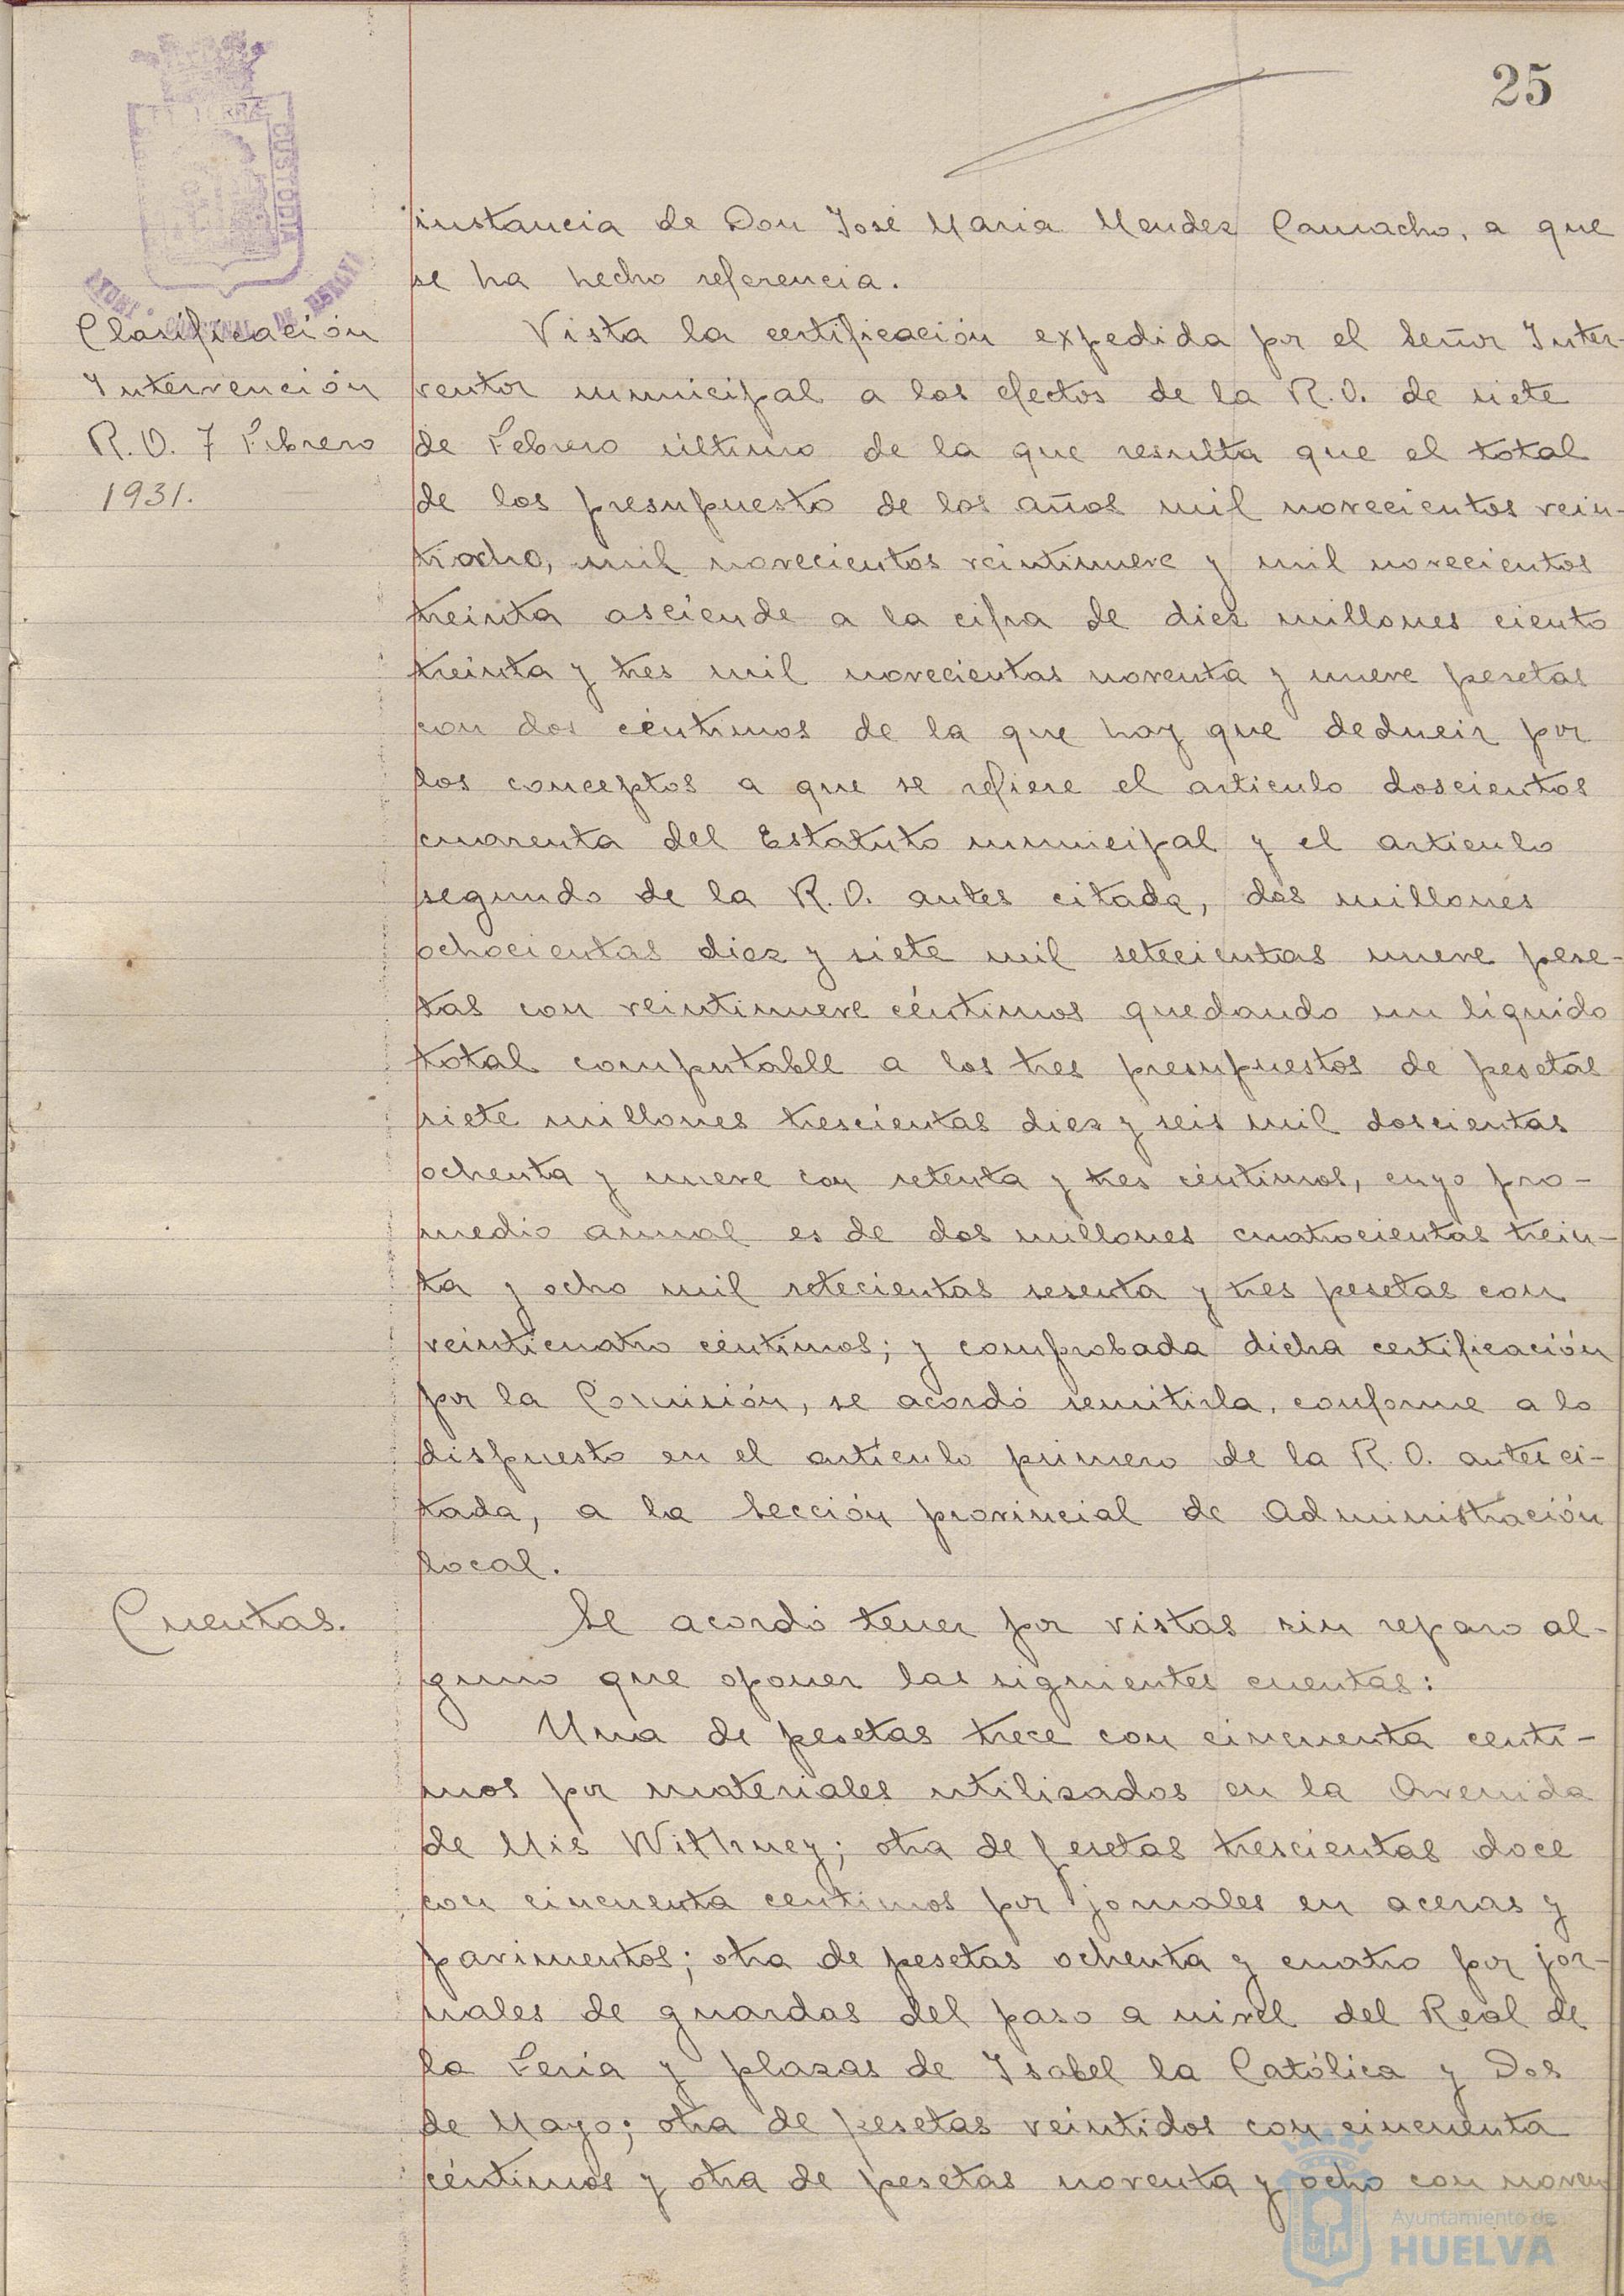 25
instancia de Don José Maria Mendez Camacho, a que
se ha hecho referencia.
Clasificación
Intervención
R.O. 7 Febrero
1931.
Vista la certificación expedida por el Señor Inter-
ventor municipal a los efectos de la R.O. de siete
de Febrero último de la que resulta que el total
de los presupuesto de los años mil novecientos vein-
tiocho, mil novecientos veintinueve y mil novecientos
treinta asciende a la cifra de diez millones ciento
treinta y tres mil novecientas noventa y nueve pesetas
con dos céntimos de la que hay que deducir por
los conceptos a que se refiere el articulo doscientos
cuarenta del Estatuto municipal y el articulo
segundo de la R.O. antes citada, dos millones
ochocientas diez y siete mil setecientas nueve pese-
tas con veintinueve céntimos quedando un líquido
total computable a los tres presupuestos de pesetas
siete millones trescientas diez y seis mil doscientas
ochenta y nueve con setenta y tres céntimos, cuyo pro-
medio annal es de dos millones cuatrocientas trein-
ta y ocho mil setecientas sesenta y tres pesetas con
veinticuatro céntimos; y comprobada dicha certificación
por la Comisión, se acordó remitirla, conforme a lo
dispuesto en el artículo primero de la R.O. antes ci-
tada, a la Sección provincial de Administración
local.
Cuentas.
Se acordó tener por vistas sin reparo al-
guno que oponer las siguientes cuentas:
Una de pesetas trece con cincuenta centi-
mos por materiales utilizados en la Avenida
de Mis Withney; otra de pesetas trescientas doce
con cincuenta centimos por jornales en aceras y
pavimentos; otra de pesetas ochenta y cuatro por jor-
nales de guardas del paso a nivel del Real de
la Feria y plazas de Isabel la Católica y Dos
de Mayo; otra de pesetas veintidos con cincuenta
céntimos y otra de pesetas noventa y ocho con noven
Ayuntamiento de
HUELVA